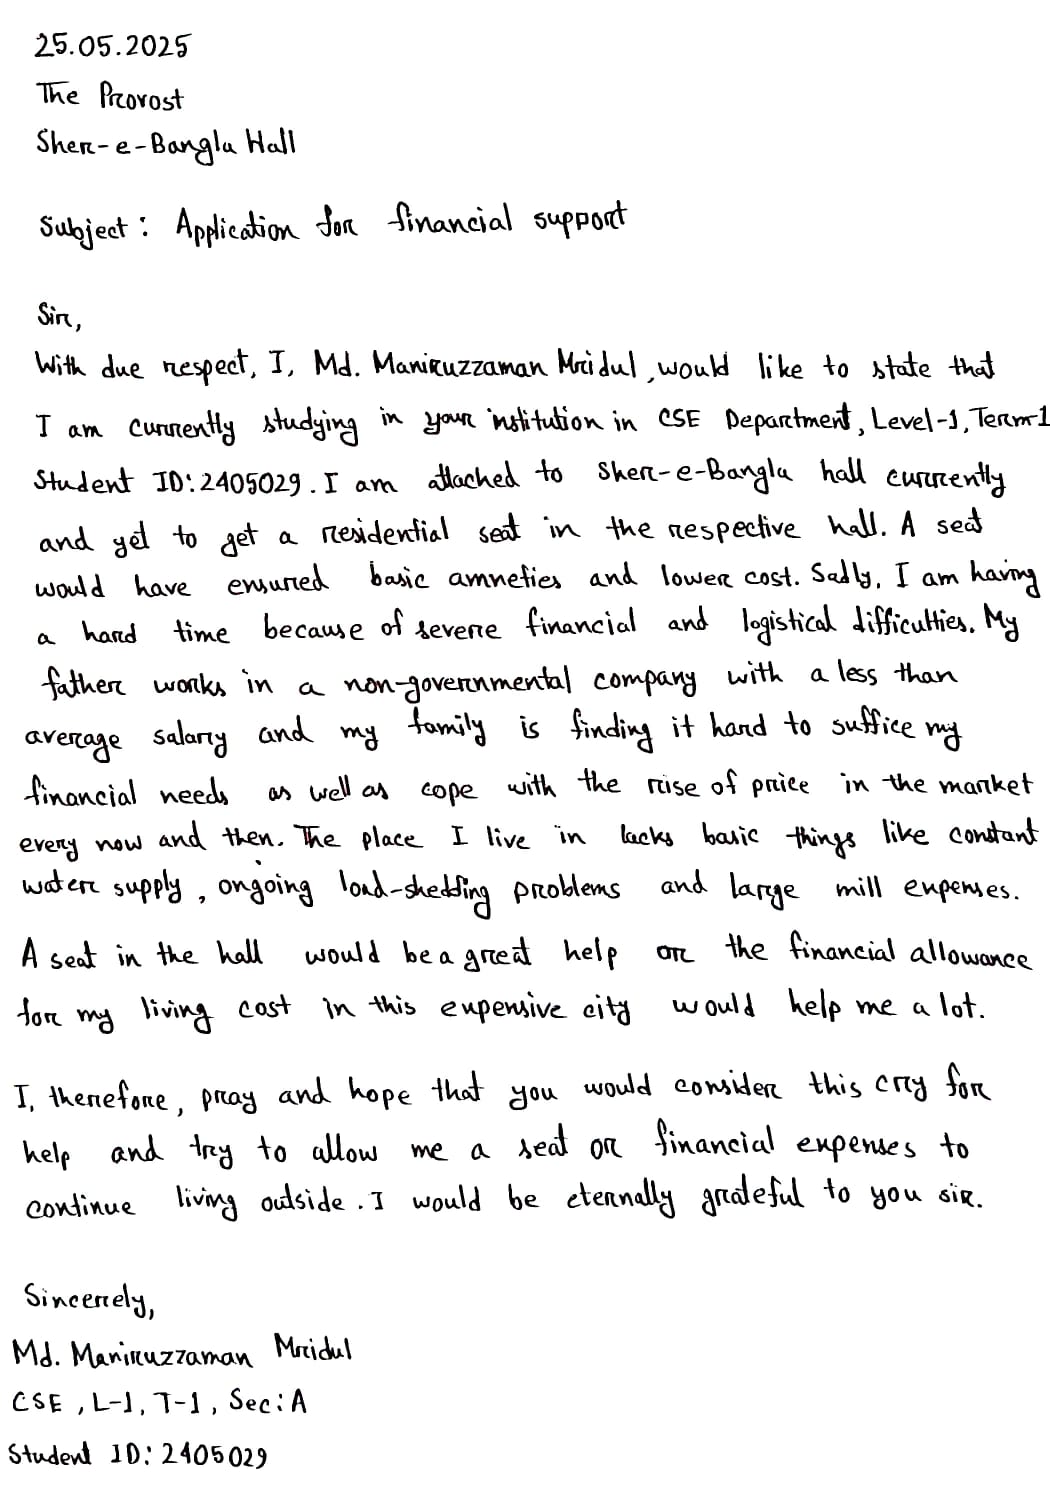 25.05.2025
The Provost
Sher-e-Bangla Hall
Subject: Application for financial support
Sir,
With due respect, I, Md. Maniruzzaman Mridul, would like to state that
I am currently studying in your institution in CSE Department, Level-1, Term-1
Student ID: 2405029. I am attached to Sher-e-Bangla hall currently
and yet to get a residential seat in the respective hall. A seat
would have ensured basic amneties and lower cost. Sadly, I am having
a hard time because of severe financial and logistical difficulties. My
father works in a non-governmental company with a less than
average salary and my family is finding it hard to suffice my
financial needs as well as cope with the rise of price in the market
every now and then. The place I live in lacks basic things like constant
water supply, ongoing load-shedding problems and large mill expenses.
A seat in the hall would be a great help or the financial allowance
for my living cost in this expensive city would help me a lot.
I, therefore, pray and hope that you would consider this cry for
help and try to allow me a seat or financial expenses to
continue living outside. I would be eternally grateful to you sir.
Sincerely,
Md. Maniruzzaman Mridul
CSE, L-1, T-1, Sec: A
Student ID: 2405029